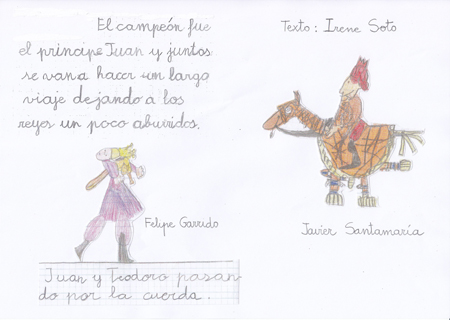 El campeón fue
el príncipe Juan y juntos
se van a hacer un largo
viaje dejando a los
reyes un poco aburridos.
Felipe Garrido
Juan y Teodoro pasan-
do por la cuerda.
Texto: Irene Soto
Javier Santamaría